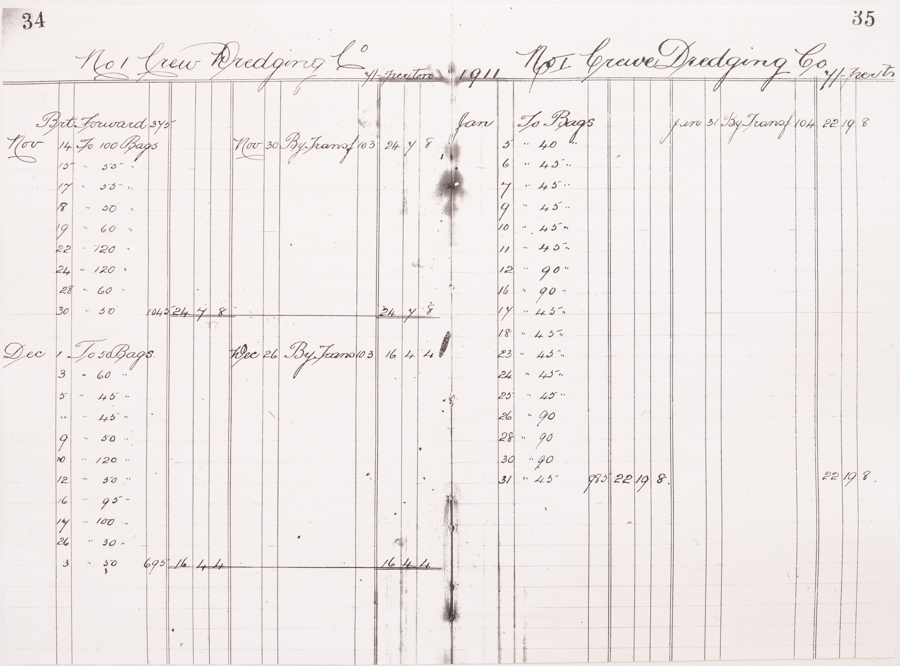 34
No 1 Crew Dredging Co
Brt Forward 375
Nov 14 To 100 Bags Nov 30 By Transf 103 24 7 8
15 " 55 "
17 " 55 "
18 " 50 "
19 " 60 "
22 " 120 "
24 " 120 "
28 " 60 "
30 " 50 1045 24 7 8 24 7 8
Dec 1 To 50 Bags Dec 26 By Trans 103 16 4 4
3 " 60 "
5 " 45 "
" " 45 "
9 " 50 "
10 " 120 "
12 " 50 "
16 " 95 "
17 " 100 "
26 " 30 "
3 " 50 695 16 4 4 16 4 4
35
1911 No 1 Crewe Dredging Co
Jan To Bags Jan 31 By Transf 104 22 19 8
5 " 40 "
6 " 45 "
7 " 45 "
9 " 45 "
10 " 45 "
11 " 45 "
12 " 90 "
16 " 90 "
17 " 45 "
18 " 45 "
23 " 45 "
24 " 45 "
25 " 45 "
26 " 90
28 " 90
30 " 90
31 " 45 985 22 19 8 22 19 8